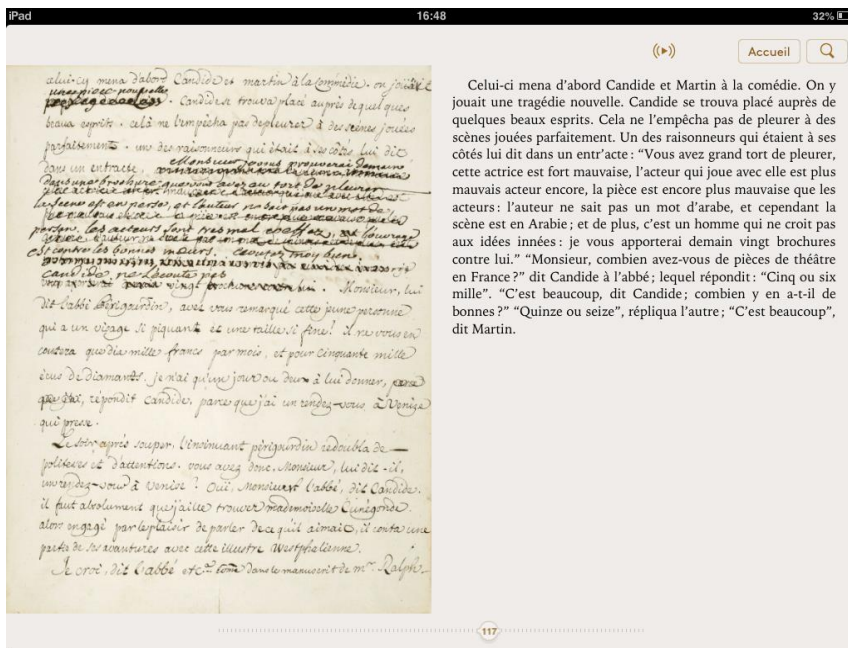 iPad
16:48
32%
Accueil
celui-cy mena d'abord Candide et martin à la Comédie. on jouait
une piece nouvelle
Candide se trouva placé auprès de quelques
beaux esprits. celà ne l'empêcha pas de pleurer à des scènes jouées
parfaitement. un des raisonneurs qui était à ses côtés lui dit
dans un entracte,
Monsieur je vous prouverai demain
la scene est en perse, et l'auteur ne sait pas un mot de
persan, les acteurs sont tres mal coeffez, et l'ouvrage
est contre les bonnes mœurs. ecoutez moy bien.
candide ne l'ecouta pas
Monsieur, lui
dit l'abbé périgourdin, avez vous remarqué cette jeune personne
qui a un visage si piquant et une taille si fine! il ne vous en
coutera que dix mille francs par mois, et pour cinquante mille
écus de diamants. je n'ai qu'un jour ou deux à lui donner,
répondit Candide, parce que j'ai un rendez-vous à Venise
qui presse.
Le soir après souper, l'insinuant périgourdin redoubla de
politesses et d'attentions. vous avez donc, Monsieur, lui dit-il,
un rendez-vous à Venise? Oui, Monsieur l'abbé, dit Candide.
il faut absolument que j'aille trouver mademoiselle Cunégonde.
alors engagé par le plaisir de parler de ce qu'il aimait, il conta une
partie de ses avantures avec cette illustre Westphalienne.
Je croi, dit l'abbé etc. dans le manuscrit de mr. Ralph.
Celui-ci mena d'abord Candide et Martin à la comédie. On y
jouait une tragédie nouvelle. Candide se trouva placé auprès de
quelques beaux esprits. Cela ne l'empêcha pas de pleurer à des
scènes jouées parfaitement. Un des raisonneurs qui étaient à ses
côtés lui dit dans un entr'acte : “Vous avez grand tort de pleurer,
cette actrice est fort mauvaise, l'acteur qui joue avec elle est plus
mauvais acteur encore, la pièce est encore plus mauvaise que les
acteurs : l'auteur ne sait pas un mot d'arabe, et cependant la
scène est en Arabie ; et de plus, c'est un homme qui ne croit pas
aux idées innées : je vous apporterai demain vingt brochures
contre lui.” “Monsieur, combien avez-vous de pièces de théâtre
en France ?” dit Candide à l'abbé ; lequel répondit : “Cinq ou six
mille”. “C'est beaucoup, dit Candide ; combien y en a-t-il de
bonnes ?” “Quinze ou seize”, répliqua l'autre ; “C'est beaucoup”,
dit Martin.
117